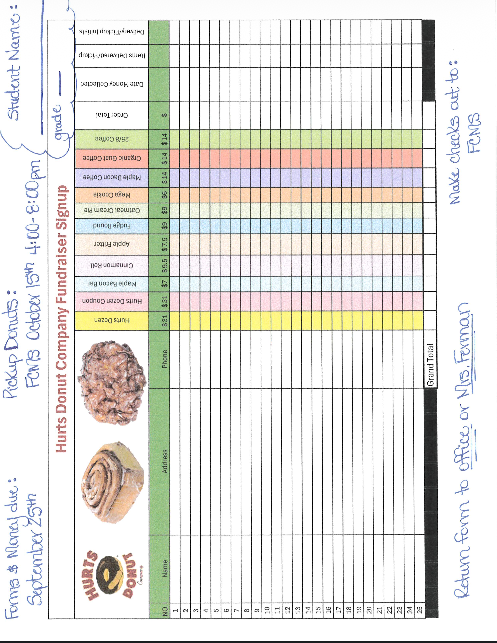 Forms & Money due:
September 25th
Pickup Donuts:
FCMS October 15th 4:00-8:00pm
Student Name:
grade
Hurts Donut Company Fundraiser Signup
HURTS
DONUT
Company
Hurts Dozen
Hurts Dozen Coupon
Maple Bacon Bar
Cinnamon Roll
Apple Fritter
Fudge Round
Oatmeal Cream Pie
Mega Donuts
Maple Bacon Coffee
Organic Gust Coffee
25/8 Coffee
Order Total
Date Money Collected
Items Delivered/Pickup
Delivery/Pickup Initials
NO
Name
Address
Phone
$21
$21
$7
$5.5
$7.5
$9
$9
$6
$14
$14
$14
$
1
2
3
4
5
6
7
8
9
10
11
12
13
14
15
16
17
18
19
20
21
22
23
24
25
Grand Total
Return form to office or Mrs. Ferman
Make checks out to:
FCMS